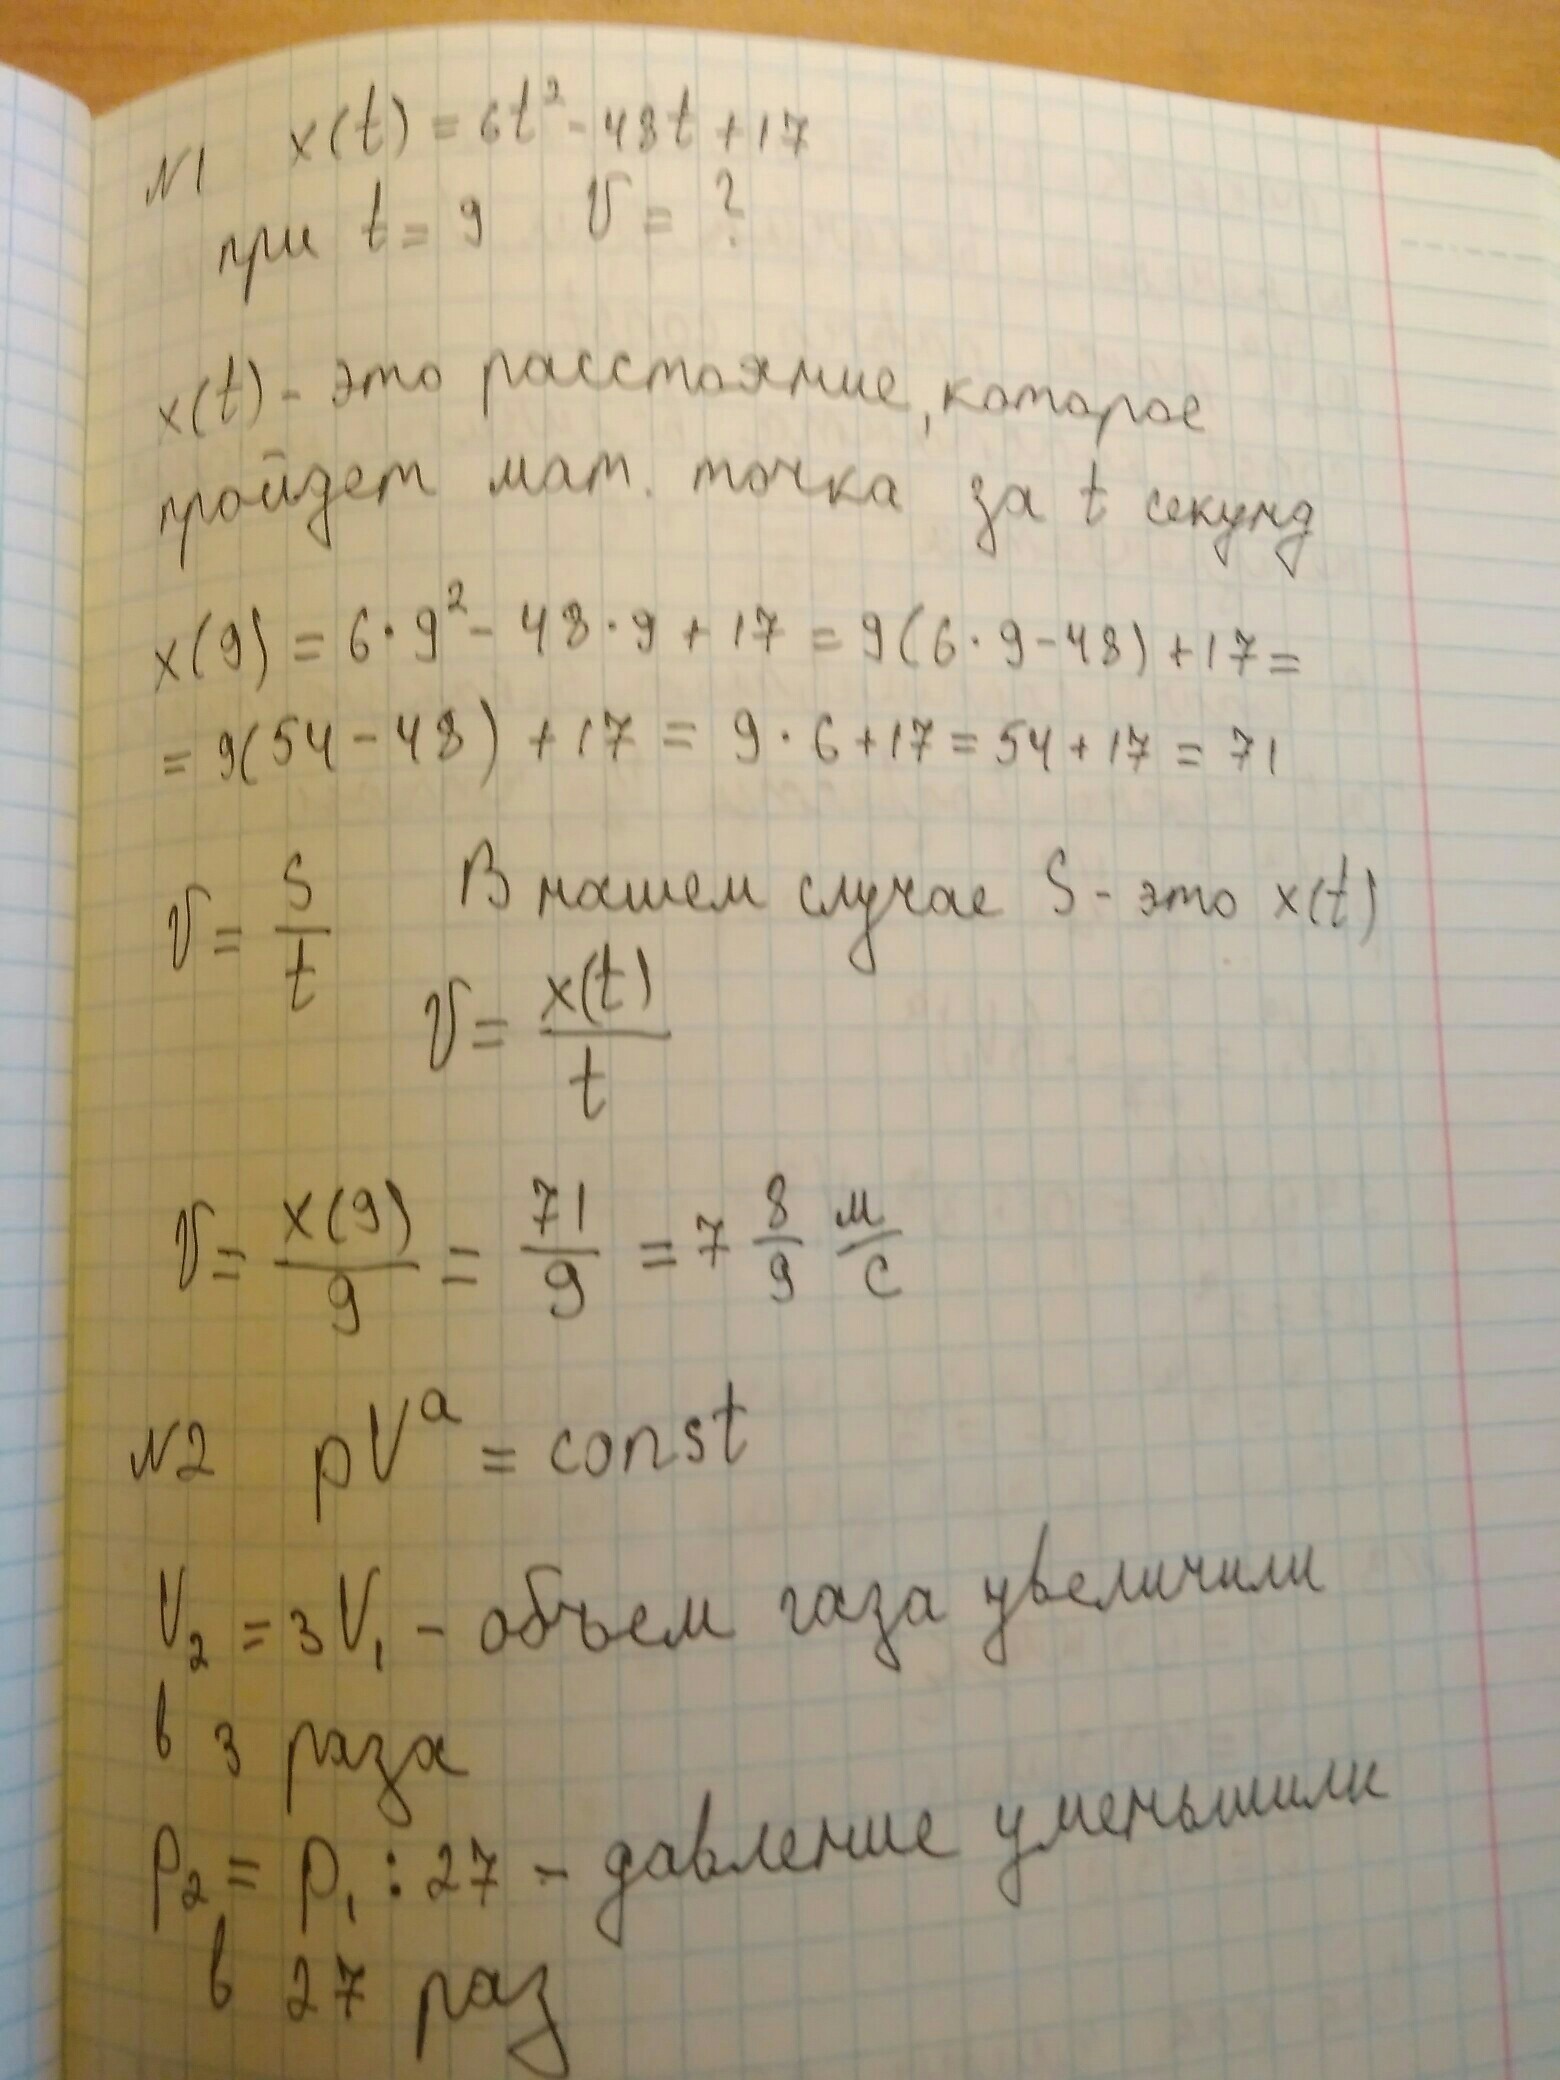 №1 x(t) = 6t² - 48t + 17
при t = 9 V = ?
x(t) - это расстояние, которое
пройдет мат. точка за t секунд
x(9) = 6 · 9² - 48 · 9 + 17 = 9(6 · 9 - 48) + 17 =
= 9(54 - 48) + 17 = 9 · 6 + 17 = 54 + 17 = 71
V = S/t В нашем случае S - это x(t)
V = x(t)/t
V = x(9)/9 = 71/9 = 7 8/9 м/с
№2 pVᵃ = const
V₂ = 3V₁ - объем газа увеличили
в 3 раза
p₂ = p₁ : 27 - давление уменьшили
в 27 раз